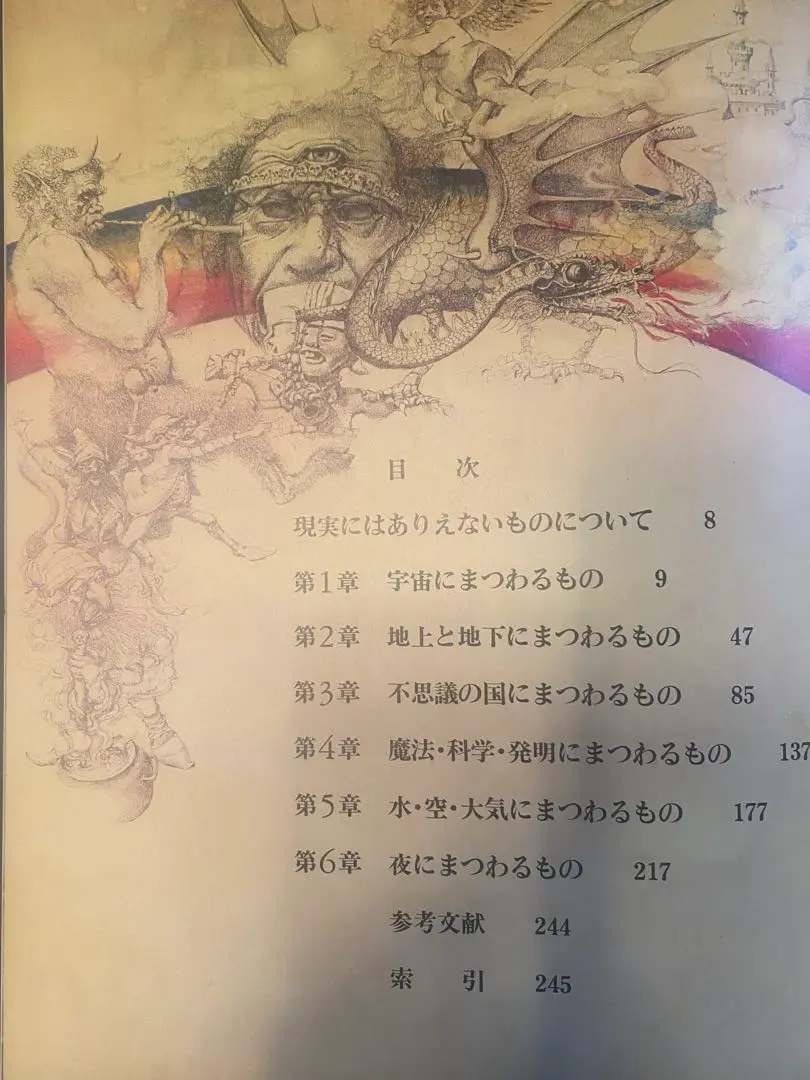 目 次
現実にはありえないものについて 8
第1章 宇宙にまつわるもの 9
第2章 地上と地下にまつわるもの 47
第3章 不思議の国にまつわるもの 85
第4章 魔法・科学・発明にまつわるもの 137
第5章 水・空・大気にまつわるもの 177
第6章 夜にまつわるもの 217
参考文献 244
索 引 245